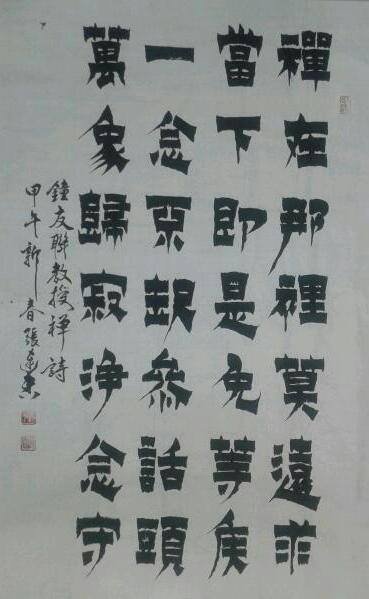 禪在那裡莫遠求
當下即是免等候
一念參話頭
萬象歸寂淨念守
鐘友聯教授禪詩
甲午新春張